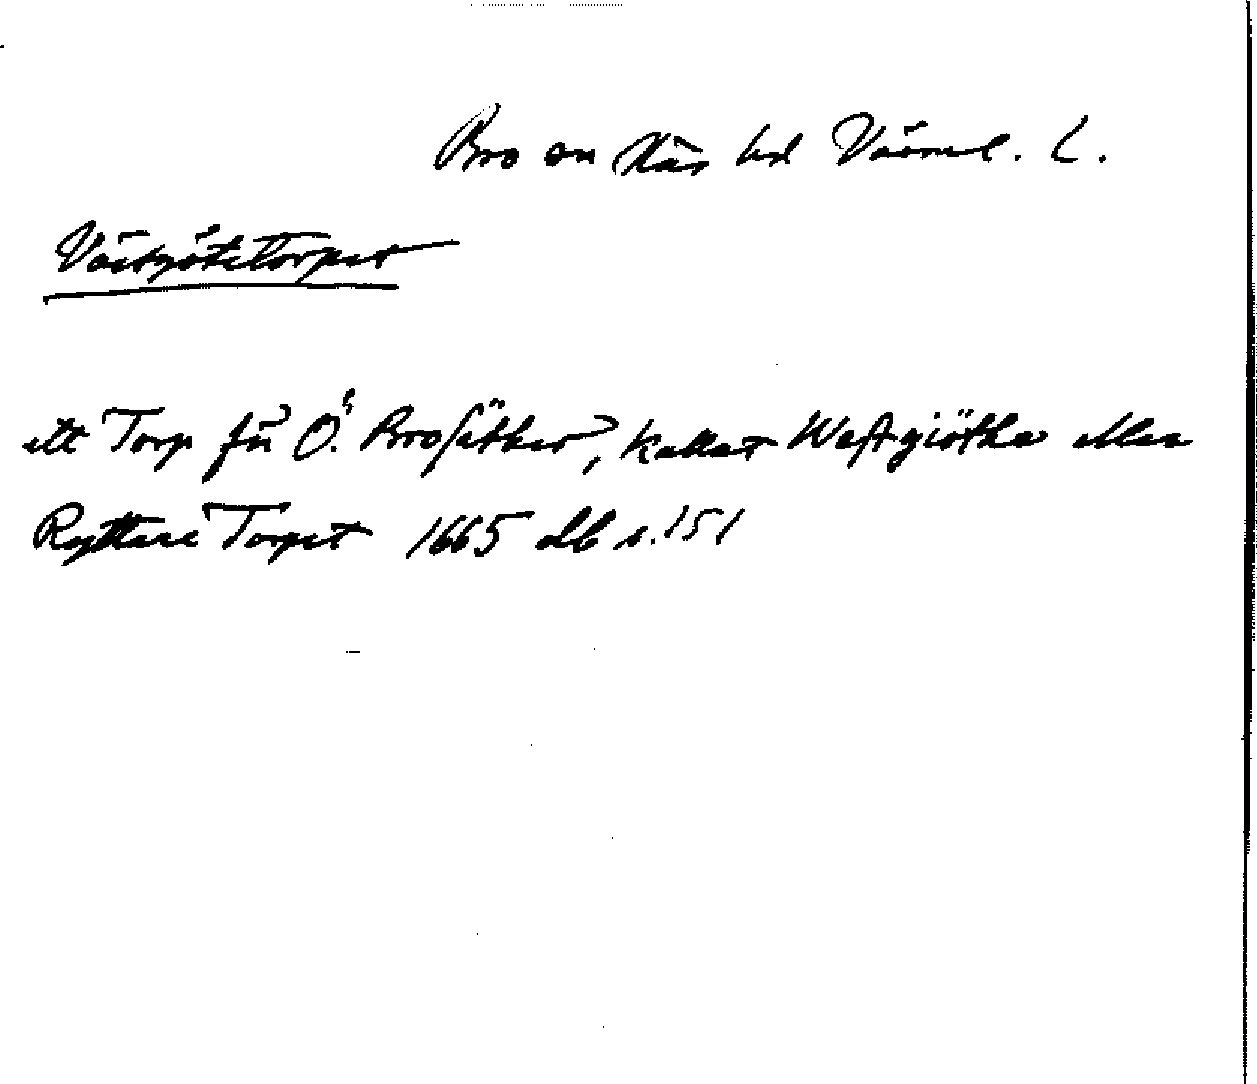 Bro sn Näs hd Värml. L.
Västgötetorpet
ett Torp frå Ö. Brosäther, kallat Westgiötha eller
Ryttare Torpet 1665 db s. 151